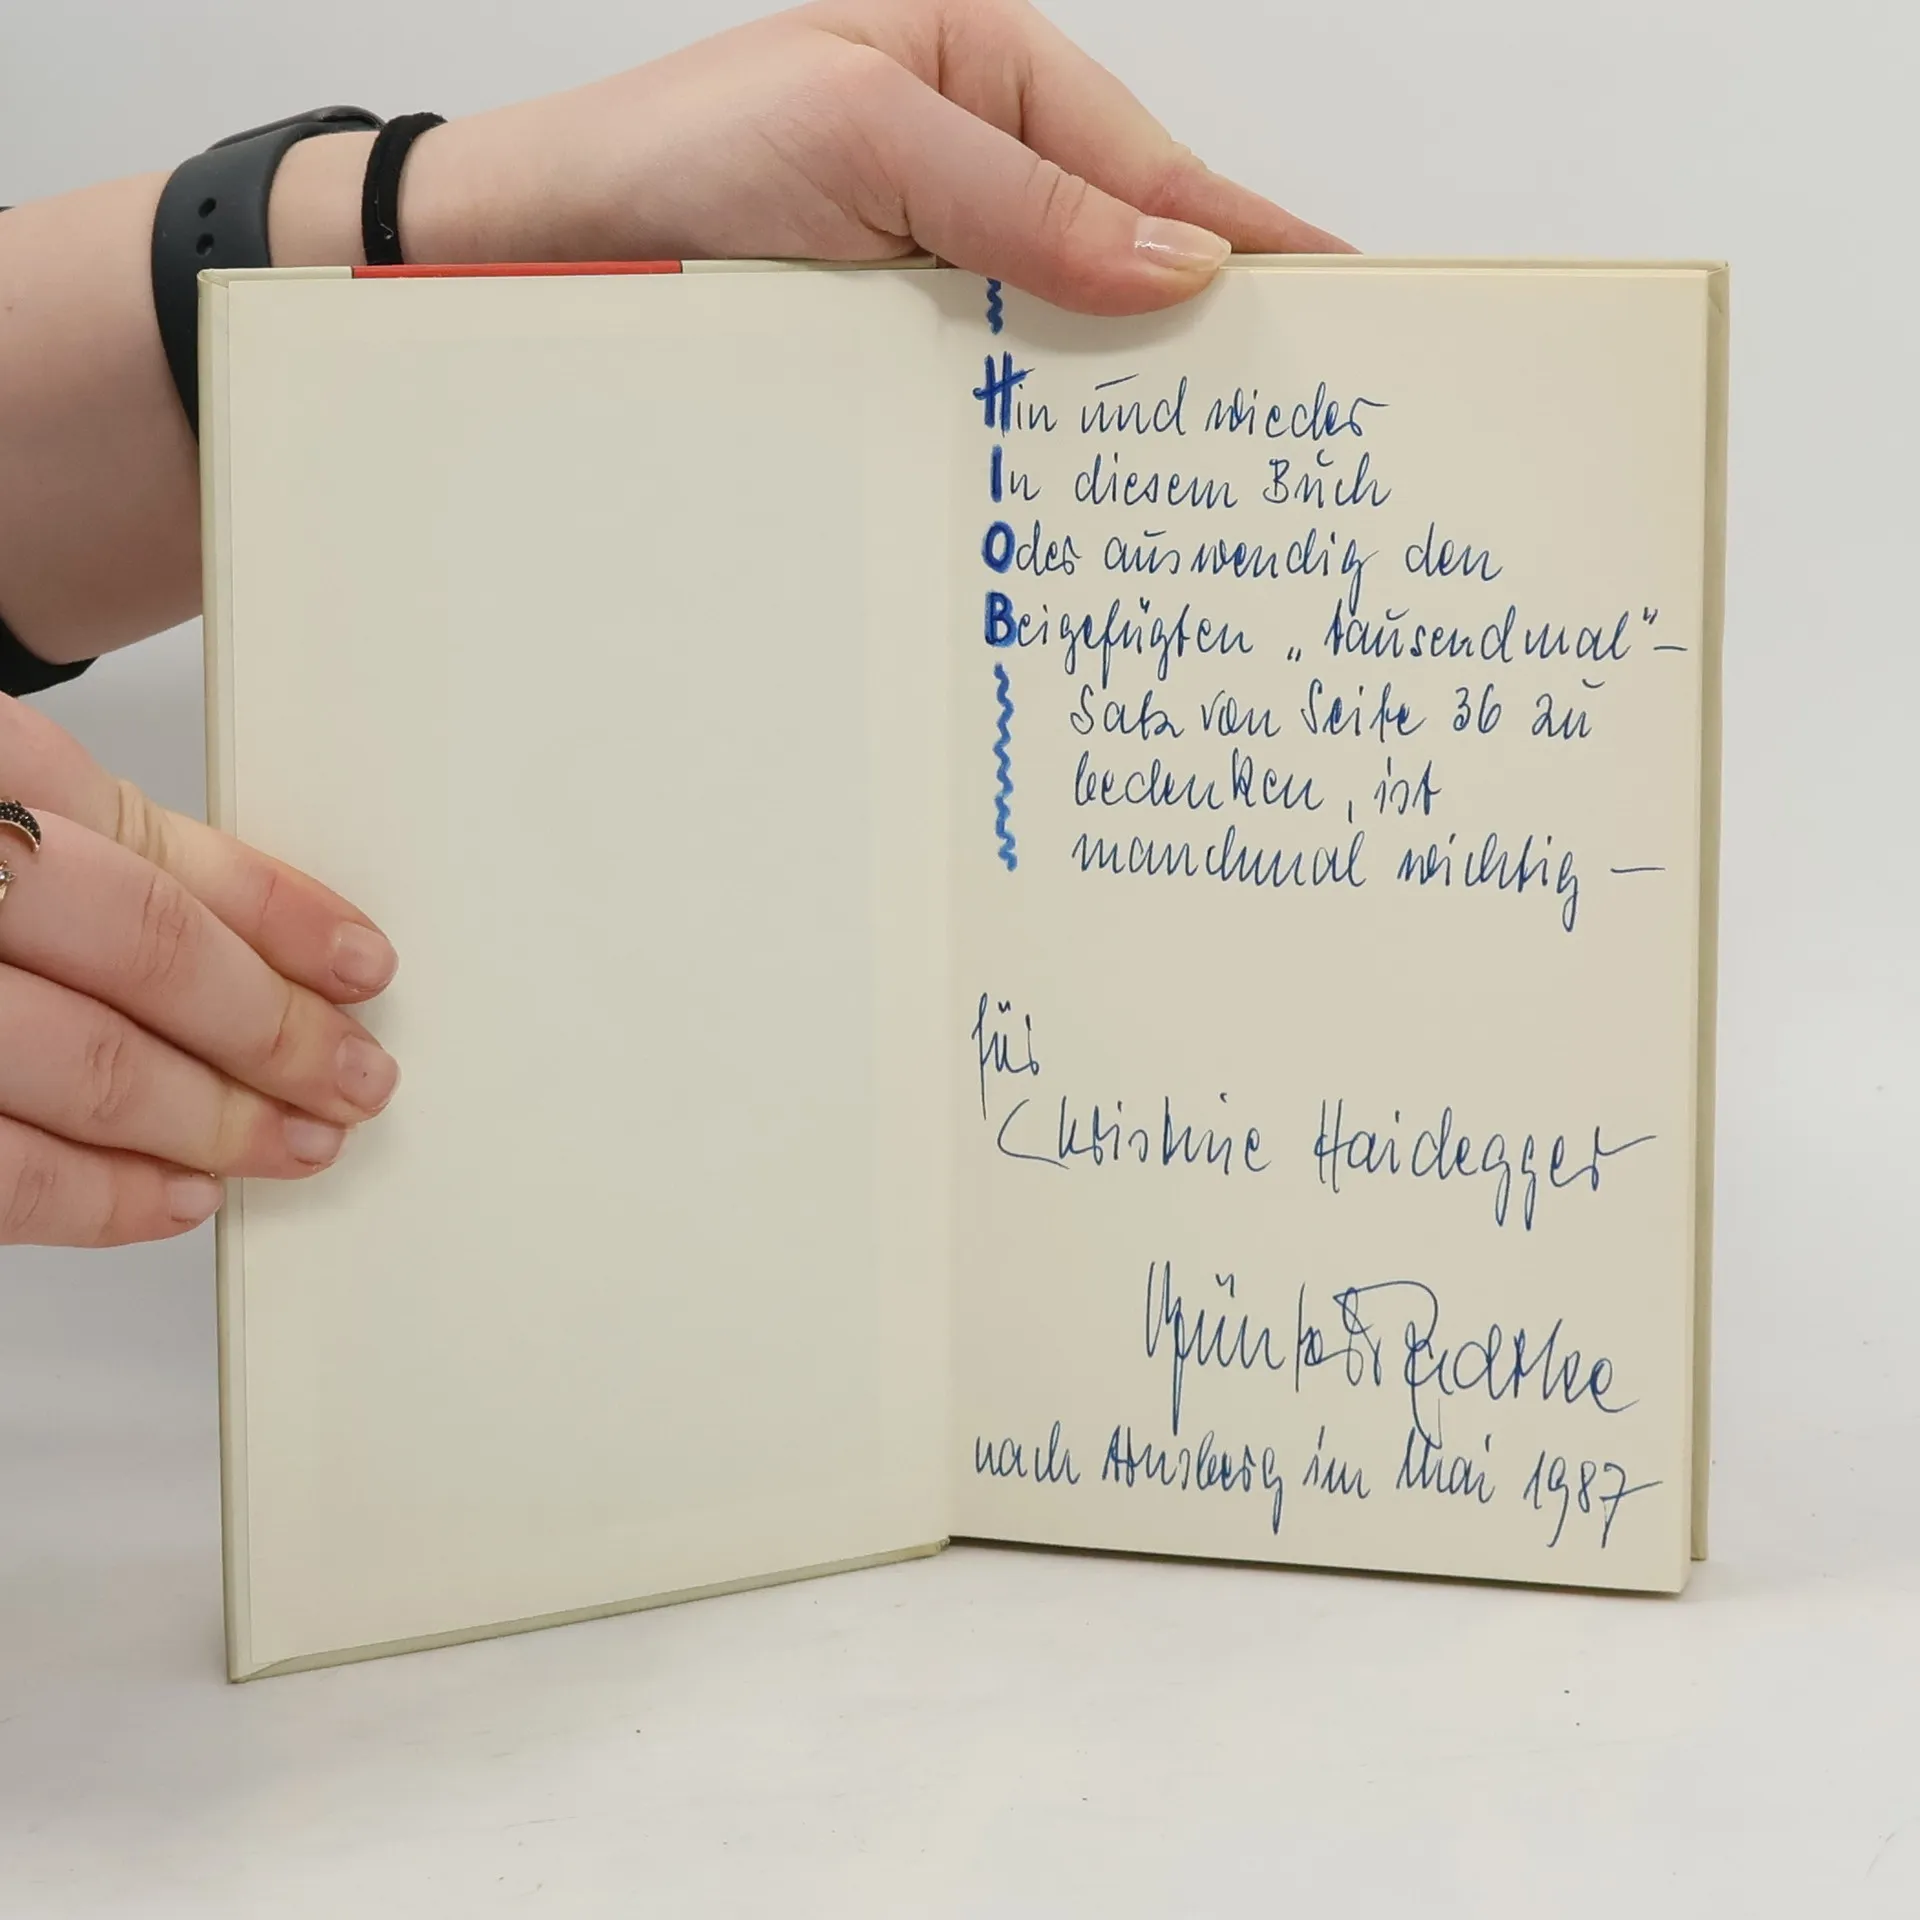 Hin und wieder
In diesem Buch
Oder auswendig den
Beigefügten „tausendmal“–
Satz von Seite 36 zu
bedenken, ist
manchmal wichtig –
für
Christine Haidegger
Günter Radtke
nach Arnsberg im Mai 1987